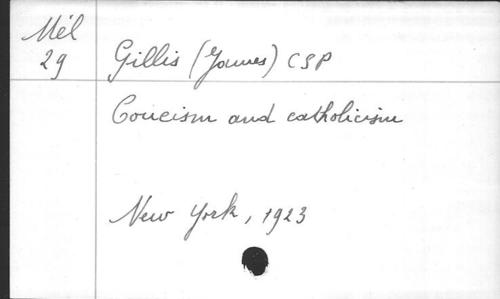 Mél
29
Gillis (James) CSP
Coueism and catholicism
New York, 1923